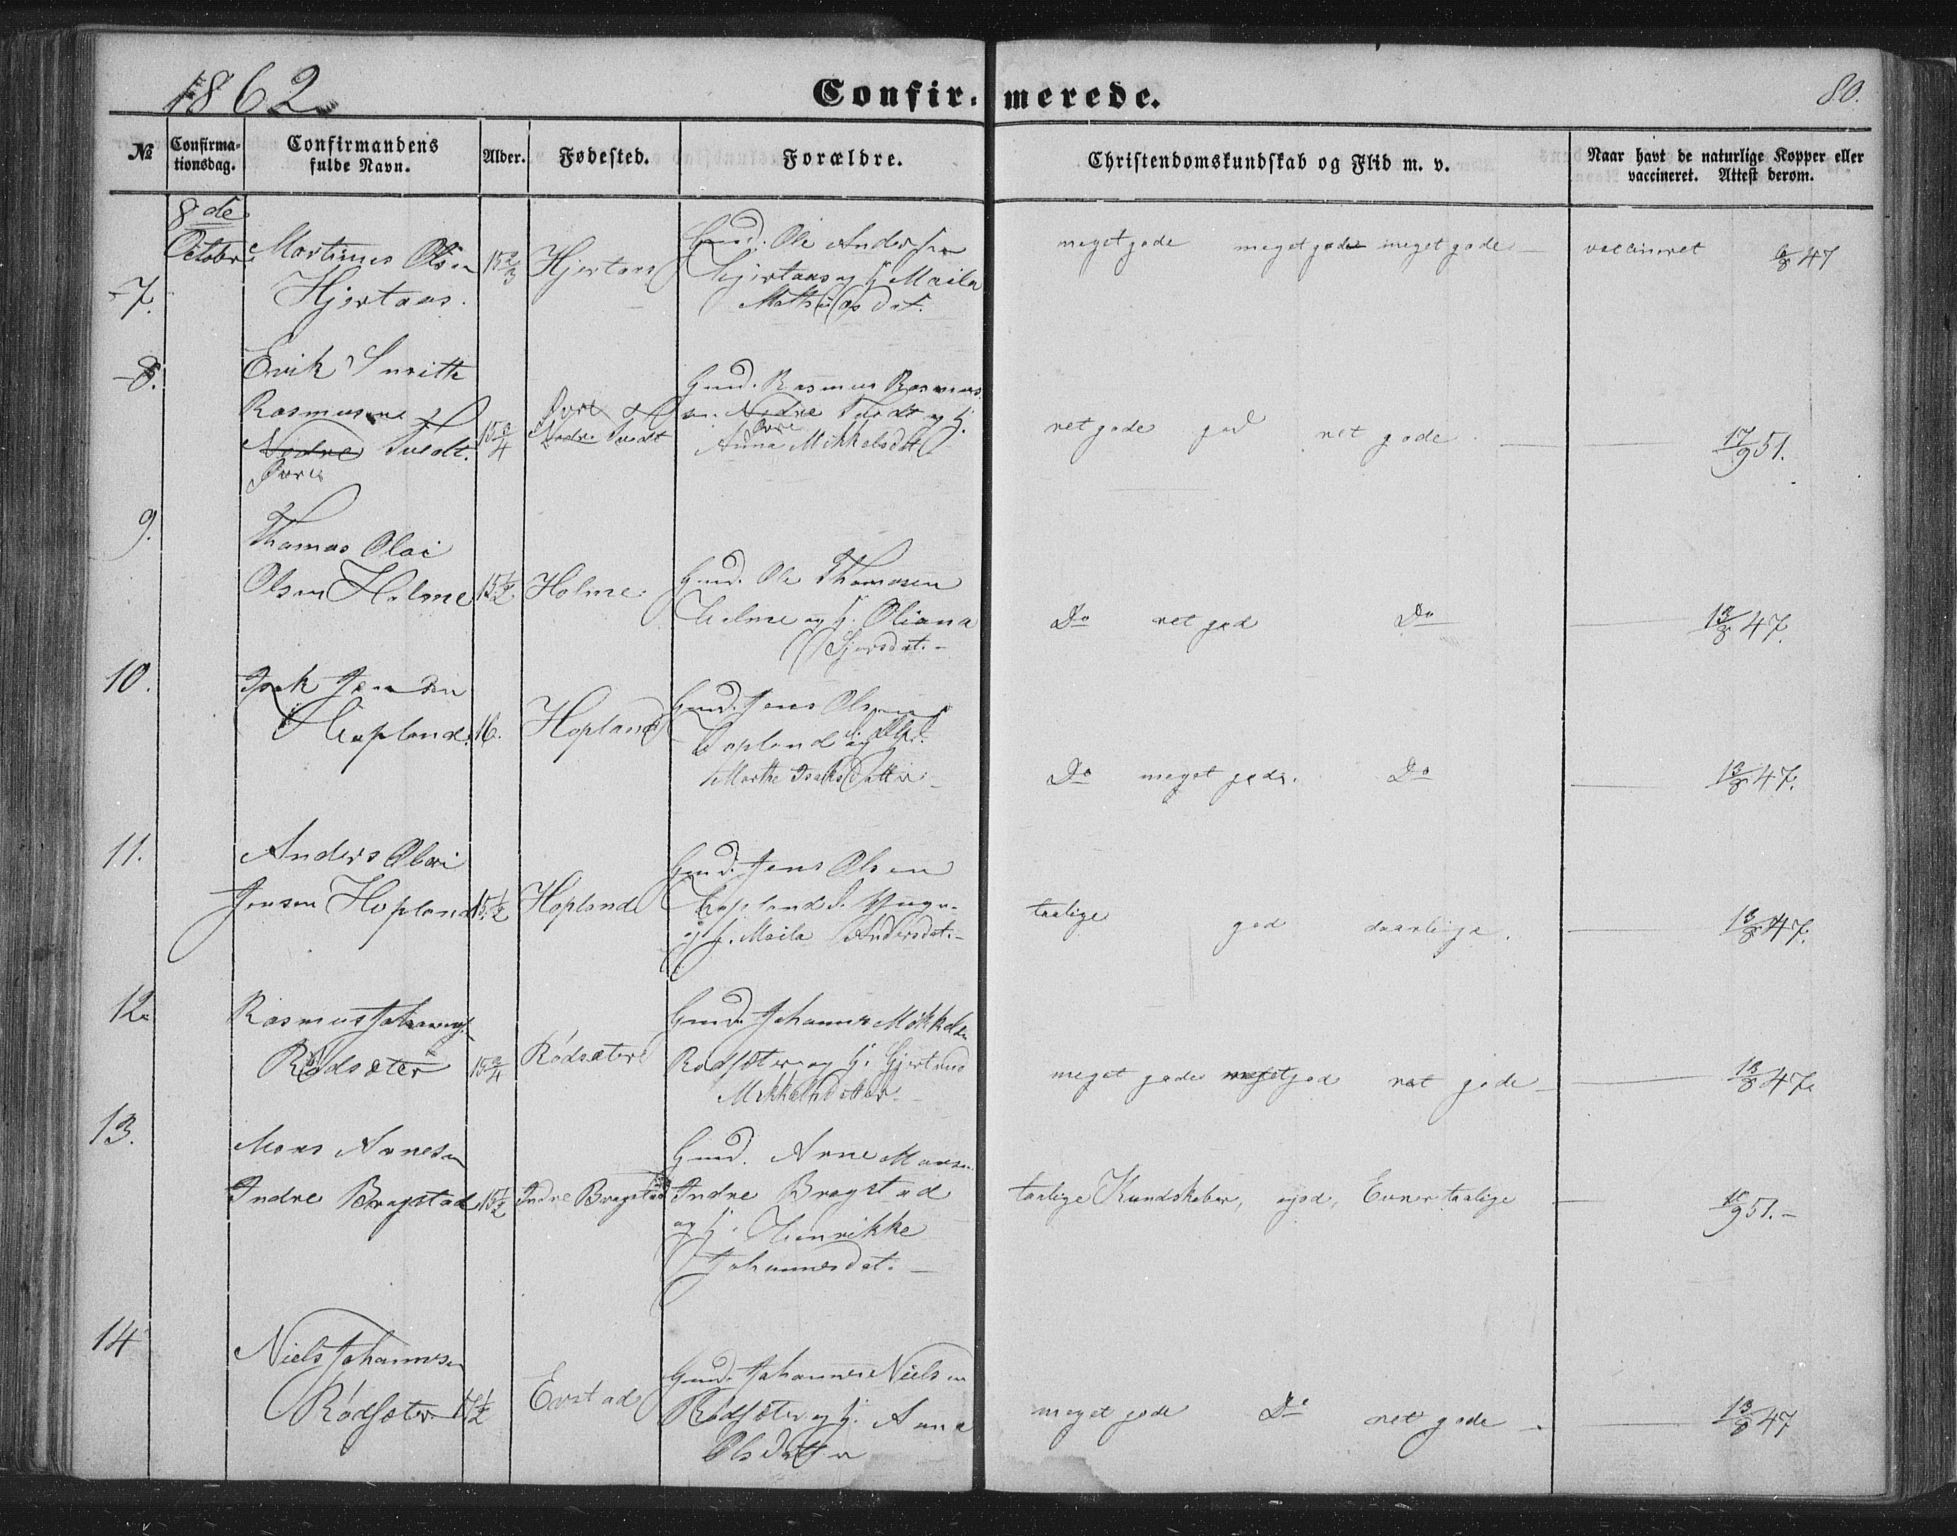 1862
Confir- merede.
80.
№ Confirma-tionsdag. Confirmandens fulde Navn. Alder. Fødested. Forældre. Christendomskundskab og Flid m. v. Naar havt de naturlige Kopper eller vaccineret. Attest derom.
8de
October
7. Martinus Olsen 15 2/3 Hjertaas Gmd. Ole Andersen meget gode meget gode meget gode vaccineret 6/8 47
Hjertaas. Hjertaas og H. Maila
Mathiasdat.
8. Erik Smith
Rasmusen Gmd. Rasmus Rasmus-
Nedre Tvedt. 15 3/4 Øvre Nedre Tvedt Nedre Tvedt og H. ret gode god ret gode 17/9 51.
Øvre Øvre
Anna Mikkelsdat
9. Thomas Olai
Olsen Holme 15 1/2 Holme Gmd. Ole Thomasen
Holme og H. Oliana Do ret god Do 13/8 47.
10. Isak Jensen Gmd. Jens Olsen
Hopland. 16. Hopland Hopland og
Marthe Isaksdatter Do meget gode. Do 13/8 47.
11. Anders Olai Gmd. Jens Olsen
Jensen Hopland 15 1/2 Hopland Hopland d. Yngre taalige god daarlige. 13/8 47.
og H. Maila Andersdat.
12. Rasmus Johannes. Gmd. Johannes Mikkelsen
Rødsæter 15 3/4 Rødsæter Rødsæter og H. Gjertrud meget gode meget god ret gode 13/8 47.
Mikkelsdatter
13. Mons Arnesen Gmd. Arne Monsen
Indre Brogstad 15 1/2 Indre Brogstad Indre Brogstad taalige Kundskaber, god, Evner taalige 15/9 51.
og H. Henrikke
Johannesdat.
14 Niels Johannesen Gmd. Johannes Nielsen
Rødsæter 15 1/2 Evstad Rødsæter og H. Anna meget gode Do ret gode 13/8 47
Olsdatter